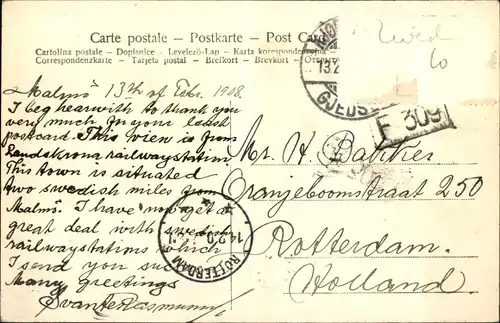 Carte postale – Postkarte – Post Card
Cartolina postale – Dopisnice – Levelező-Lap – Karta korespondencyjna
Correspondenzkarte – Tarjeta postal – Brefkort – Brevkort –
Malmö 13th of Febr. 1908.
I beg hearwith to thank you
very much for your last
postcard. This wiew is from
Landskrona railwaystation.
This town is situated
two swedish miles from
Malmö. I have now get a
great deal with swedish
railwaystations which
I send you
Many greetings
Svante Rasmusson
GJEDS
F 309
Mr. H. Bakker
Oranjeboomstraat 250
Rotterdam.
Holland.
ROTTERDAM